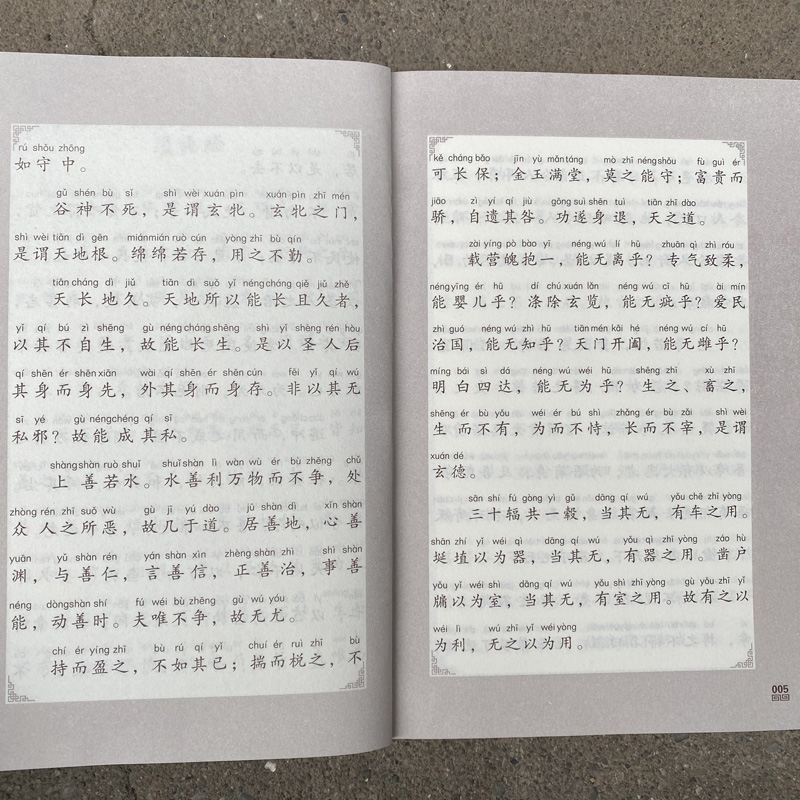 rú shǒu zhōng
如守中。
gǔ shén bù sǐ shì wèi xuán pìn xuán pìn zhī mén
谷神不死，是谓玄牝。玄牝之门，
shì wèi tiān dì gēn mián mián ruò cún yòng zhī bù qín
是谓天地根。绵绵若存，用之不勤。
tiān cháng dì jiǔ tiān dì suǒ yǐ néng cháng qiě jiǔ zhě
天长地久。天地所以能长且久者，
yǐ qí bú zì shēng gù néng cháng shēng shì yǐ shèng rén hòu
以其不自生，故能长生。是以圣人后
qí shēn ér shēn xiān wài qí shēn ér shēn cún fēi yǐ qí wú
其身而身先，外其身而身存。非以其无
sī yé gù néng chéng qí sī
私邪？故能成其私。
shàng shàn ruò shuǐ shuǐ shàn lì wàn wù ér bù zhēng chǔ
上善若水。水善利万物而不争，处
zhòng rén zhī suǒ wù gù jī yú dào jū shàn dì xīn shàn
众人之所恶，故几于道。居善地，心善
yuān yǔ shàn rén yán shàn xìn zhèng shàn zhì shì shàn
渊，与善仁，言善信，正善治，事善
néng dòng shàn shí fú wéi bù zhēng gù wú yóu
能，动善时。夫唯不争，故无尤。
chí ér yíng zhī bù rú qí yǐ chuí ér ruì zhī bù
持而盈之，不如其已；揣而棁之，不
kě cháng bǎo jīn yù mǎn táng mò zhī néng shǒu fù guì ér
可长保；金玉满堂，莫之能守；富贵而
jiāo zì yí qí jiù gōng suì shēn tuì tiān zhī dào
骄，自遗其咎。功遂身退，天之道。
zài yíng pò bào yī néng wú lí hū zhuān qì zhì róu
载营魄抱一，能无离乎？专气致柔，
néng yīng ér hū dí chú xuán lǎn néng wú cī hū ài mín
能婴儿乎？涤除玄览，能无疵乎？爱民
zhì guó néng wú zhī hū tiān mén kāi hé néng wú cí hū
治国，能无知乎？天门开阖，能无雌乎？
míng bái sì dá néng wú wéi hū shēng zhī xù zhī
明白四达，能无为乎？生之、畜之，
shēng ér bù yǒu wéi ér bú shì zhǎng ér bù zǎi shì wèi
生而不有，为而不恃，长而不宰，是谓
xuán dé
玄德。
sān shí fú gòng yì gǔ dāng qí wú yǒu chē zhī yòng
三十辐共一毂，当其无，有车之用。
shān zhí yǐ wéi qì dāng qí wú yǒu qì zhī yòng záo hù
埏埴以为器，当其无，有器之用。凿户
yǒu yǐ wéi shì dāng qí wú yǒu shì zhī yòng gù yǒu zhī yǐ
牖以为室，当其无，有室之用。故有之以
wéi lì wú zhī yǐ wéi yòng
为利，无之以为用。
005